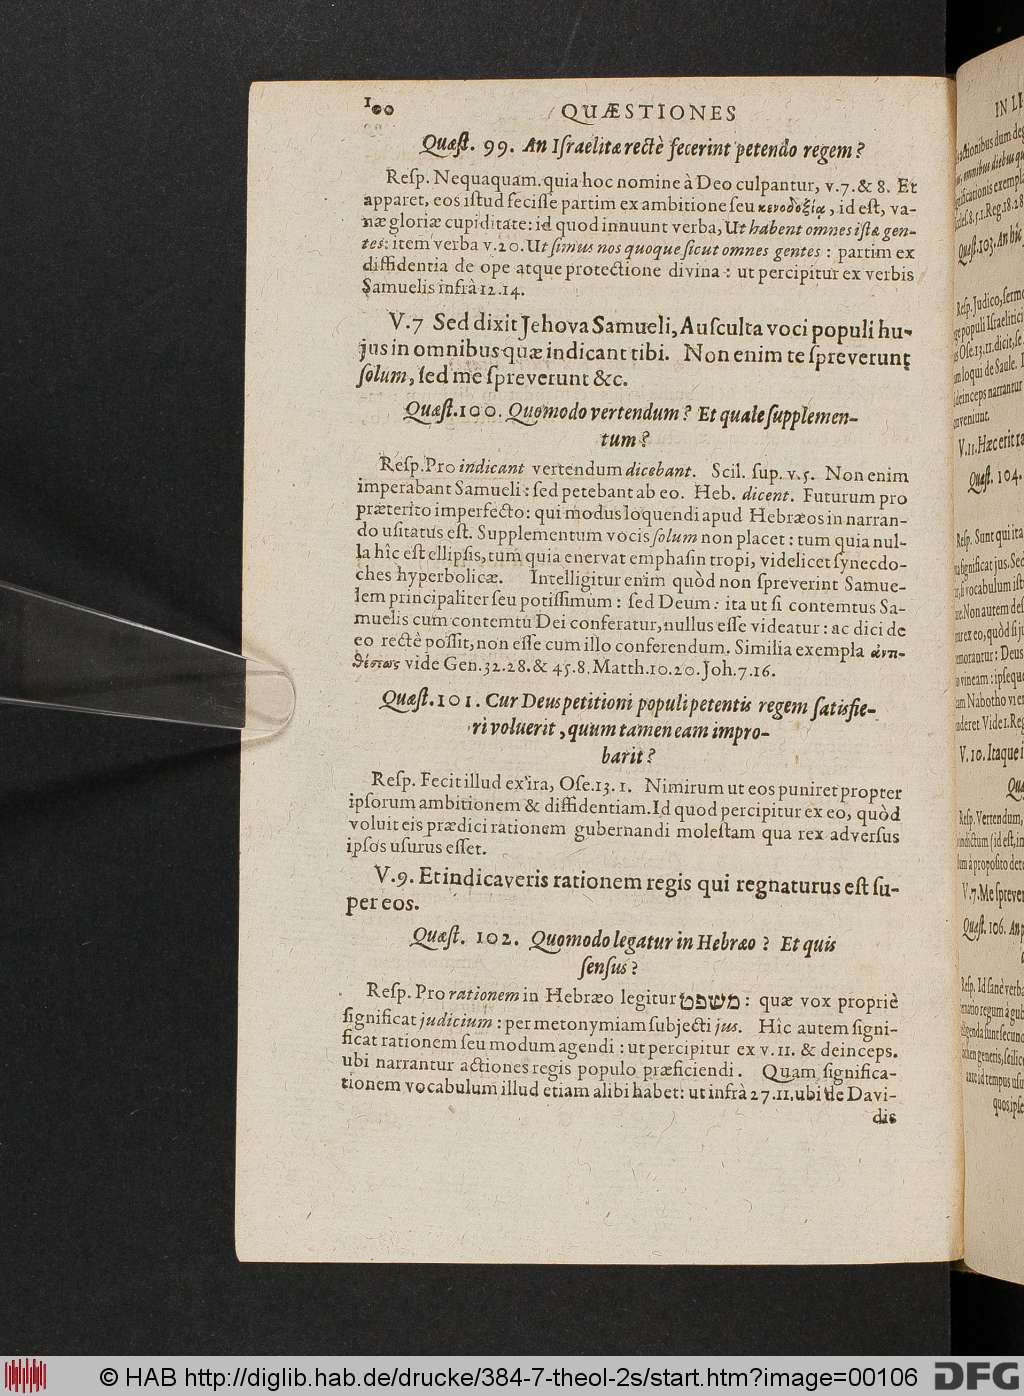 100 QUÆSTIONES
Quæſt. 99. An Iſraelitæ rectè fecerint petendo regem?
Reſp. Nequaquam. quia hoc nomine à Deo culpantur, v. 7. & 8. Et
apparet, eos iſtud feciſſe partim ex ambitione ſeu κενοδοξίᾳ, id eſt, va-
næ gloriæ cupiditate: id quod innuunt verba, Ut habent omnes iſtæ gen-
tes: item verba v. 20. Ut ſimus nos quoque ſicut omnes gentes: partim ex
diffidentia de ope atque protectione divina: ut percipitur ex verbis
Samuelis infrà 12. 14.
V. 7 Sed dixit Jehova Samueli, Auſculta voci populi hu-
jus in omnibus quæ indicant tibi. Non enim te ſpreverunt
ſolum, ſed me ſpreverunt &c.
Quæſt. 100. Quomodo vertendum? Et quale ſupplemen-
tum?
Reſp. Pro indicant vertendum dicebant. Scil. ſup. v. 5. Non enim
imperabant Samueli: ſed petebant ab eo. Heb. dicent. Futurum pro
præterito imperfecto: qui modus loquendi apud Hebræos in narran-
do uſitatus eſt. Supplementum vocis ſolum non placet: tum quia nul-
la hîc eſt ellipſis, tum quia enervat emphaſin tropi, videlicet ſynecdo-
ches hyperbolicæ. Intelligitur enim quòd non ſpreverint Samue-
lem principaliter ſeu potiſſimum: ſed Deum: ita ut ſi contemtus Sa-
muelis cum contemtu Dei conferatur, nullus eſſe videatur: ac dici de
eo rectè poſſit, non eſſe cum illo conferendum. Similia exempla ἀντι-
θέσεως vide Gen. 32. 28. & 45. 8. Matth. 10. 20. Joh. 7. 16.
Quæſt. 101. Cur Deus petitioni populi petentis regem ſatisfie-
ri voluerit, quum tamen eam impro-
barit?
Reſp. Fecit illud ex ira, Oſe. 13. 1. Nimirum ut eos puniret propter
ipſorum ambitionem & diffidentiam. Id quod percipitur ex eo, quòd
voluit eis prædici rationem gubernandi moleſtam qua rex adverſus
ipſos uſurus eſſet.
V. 9. Et indicaveris rationem regis qui regnaturus eſt ſu-
per eos.
Quæſt. 102. Quomodo legatur in Hebræo? Et quis
ſenſus?
Reſp. Pro rationem in Hebræo legitur משפט: quæ vox propriè
ſignificat judicium: per metonymiam ſubjecti jus. Hîc autem ſigni-
ficat rationem ſeu modum agendi: ut percipitur ex v. 11. & deinceps.
ubi narrantur actiones regis populo præficiendi. Quam ſignifica-
tionem vocabulum illud etiam alibi habet: ut infrà 27. 11. ubi de Davi-
dis
IN LI
Quæſt. 103. An hîc
Reſp. Judico, ſermo
V. 11. Hæc erit ra
Quæſt. 104.
Reſp. Sunt qui ita
V. 10. Itaque i
Quæ
Reſp. Vertendum,
V. 7. Me ſprever
Quæſt. 106. An p
© HAB http://diglib.hab.de/drucke/384-7-theol-2s/start.htm?image=00106
DFG